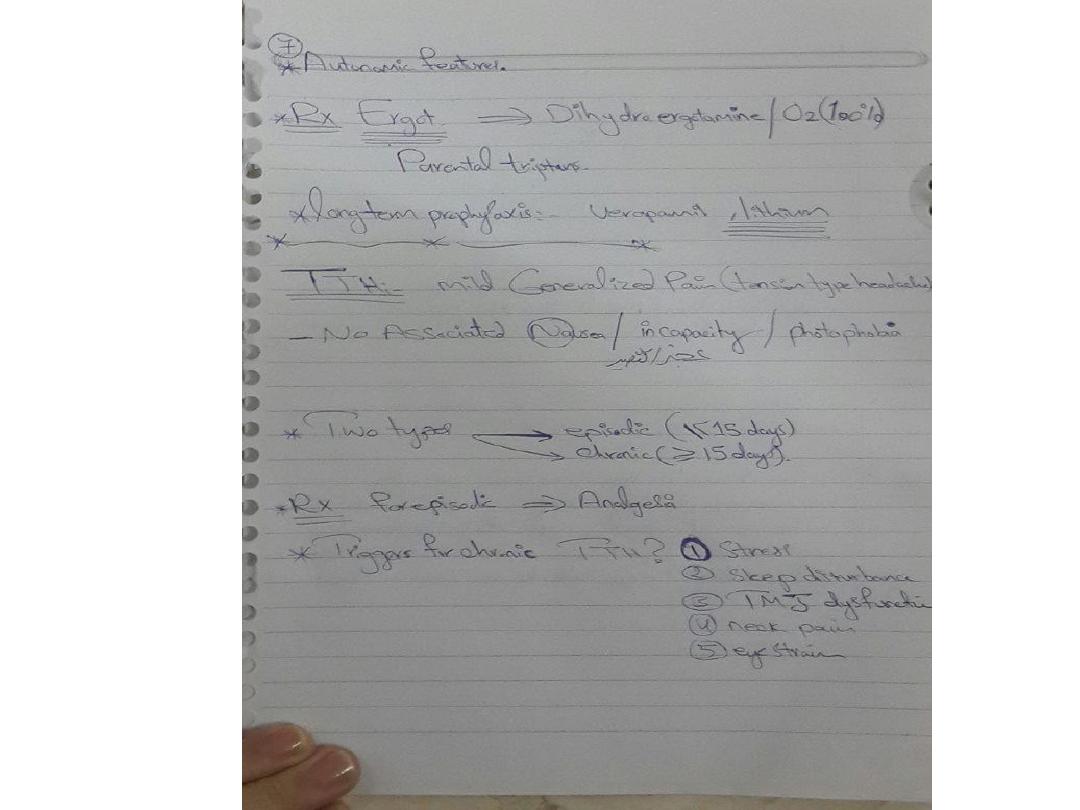 7
* Autonomic features.
* Rx Ergot ⇒ Dihydroergotamine / O2 (100%)
Parental triptans.
* long term prophylaxis:- Verapamil, lithium
TTH:- mild Generalized Pain (tension type headache)
- No Associated Nausea / incapacity / photophobia
* Two types → episodic (<15 days)
→ chronic (≥15 days).
* Rx for episodic ⇒ Analgesia
* Triggers for chronic TTH? ① Stress
② Sleep disturbance
③ TMJ dysfunctio
④ neck pain
⑤ eye strain